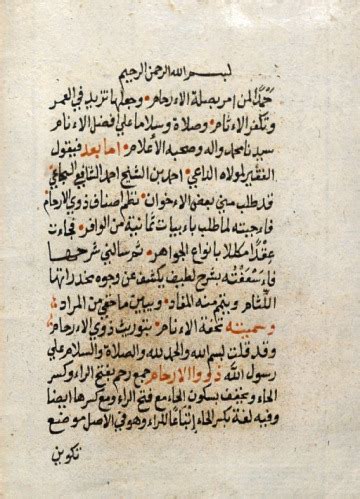 بسم الله الرحمن الرحيم
حمدًا لمن امر بصلة الارحام وجعلها تزيد في العمر
وتكفر الاثام وصلاة وسلاما علي افضل الانام
سيدنا محمد واله وصحبه الاعلام اما بعد فيقول
الفقير لمولاه الداعي احمد بن الشيخ احمد الشافعي السجاعي
قد طلب مني بعض الاخوان نظم اصناف ذوي الارحام
فاجبته لما طلب بابيات ثمانية من الوافر فجاءت
عقدًا مكللا بانواع الجواهر ثم سالني شرحها
فاسعفته بشرح لطيف يكشف عن وجوه مخدراتها
اللثام ويتم منه المفاد ويبين ما خفي من المراد
وسميته تحفة الانام بتوريث ذوي الارحام
وقد قلت بسم الله والحمد لله والصلاة والسلام علي
رسول الله ذووا الارحام جمع رحم بفتح الراء وكسر
الحاء ويخفف بسكون الحاء مع فتح الراء ومع كسرها ايضا
وفيه لغة بكسر الحاء اتباعًا للراء وهو في الاصل موضع
تكوين